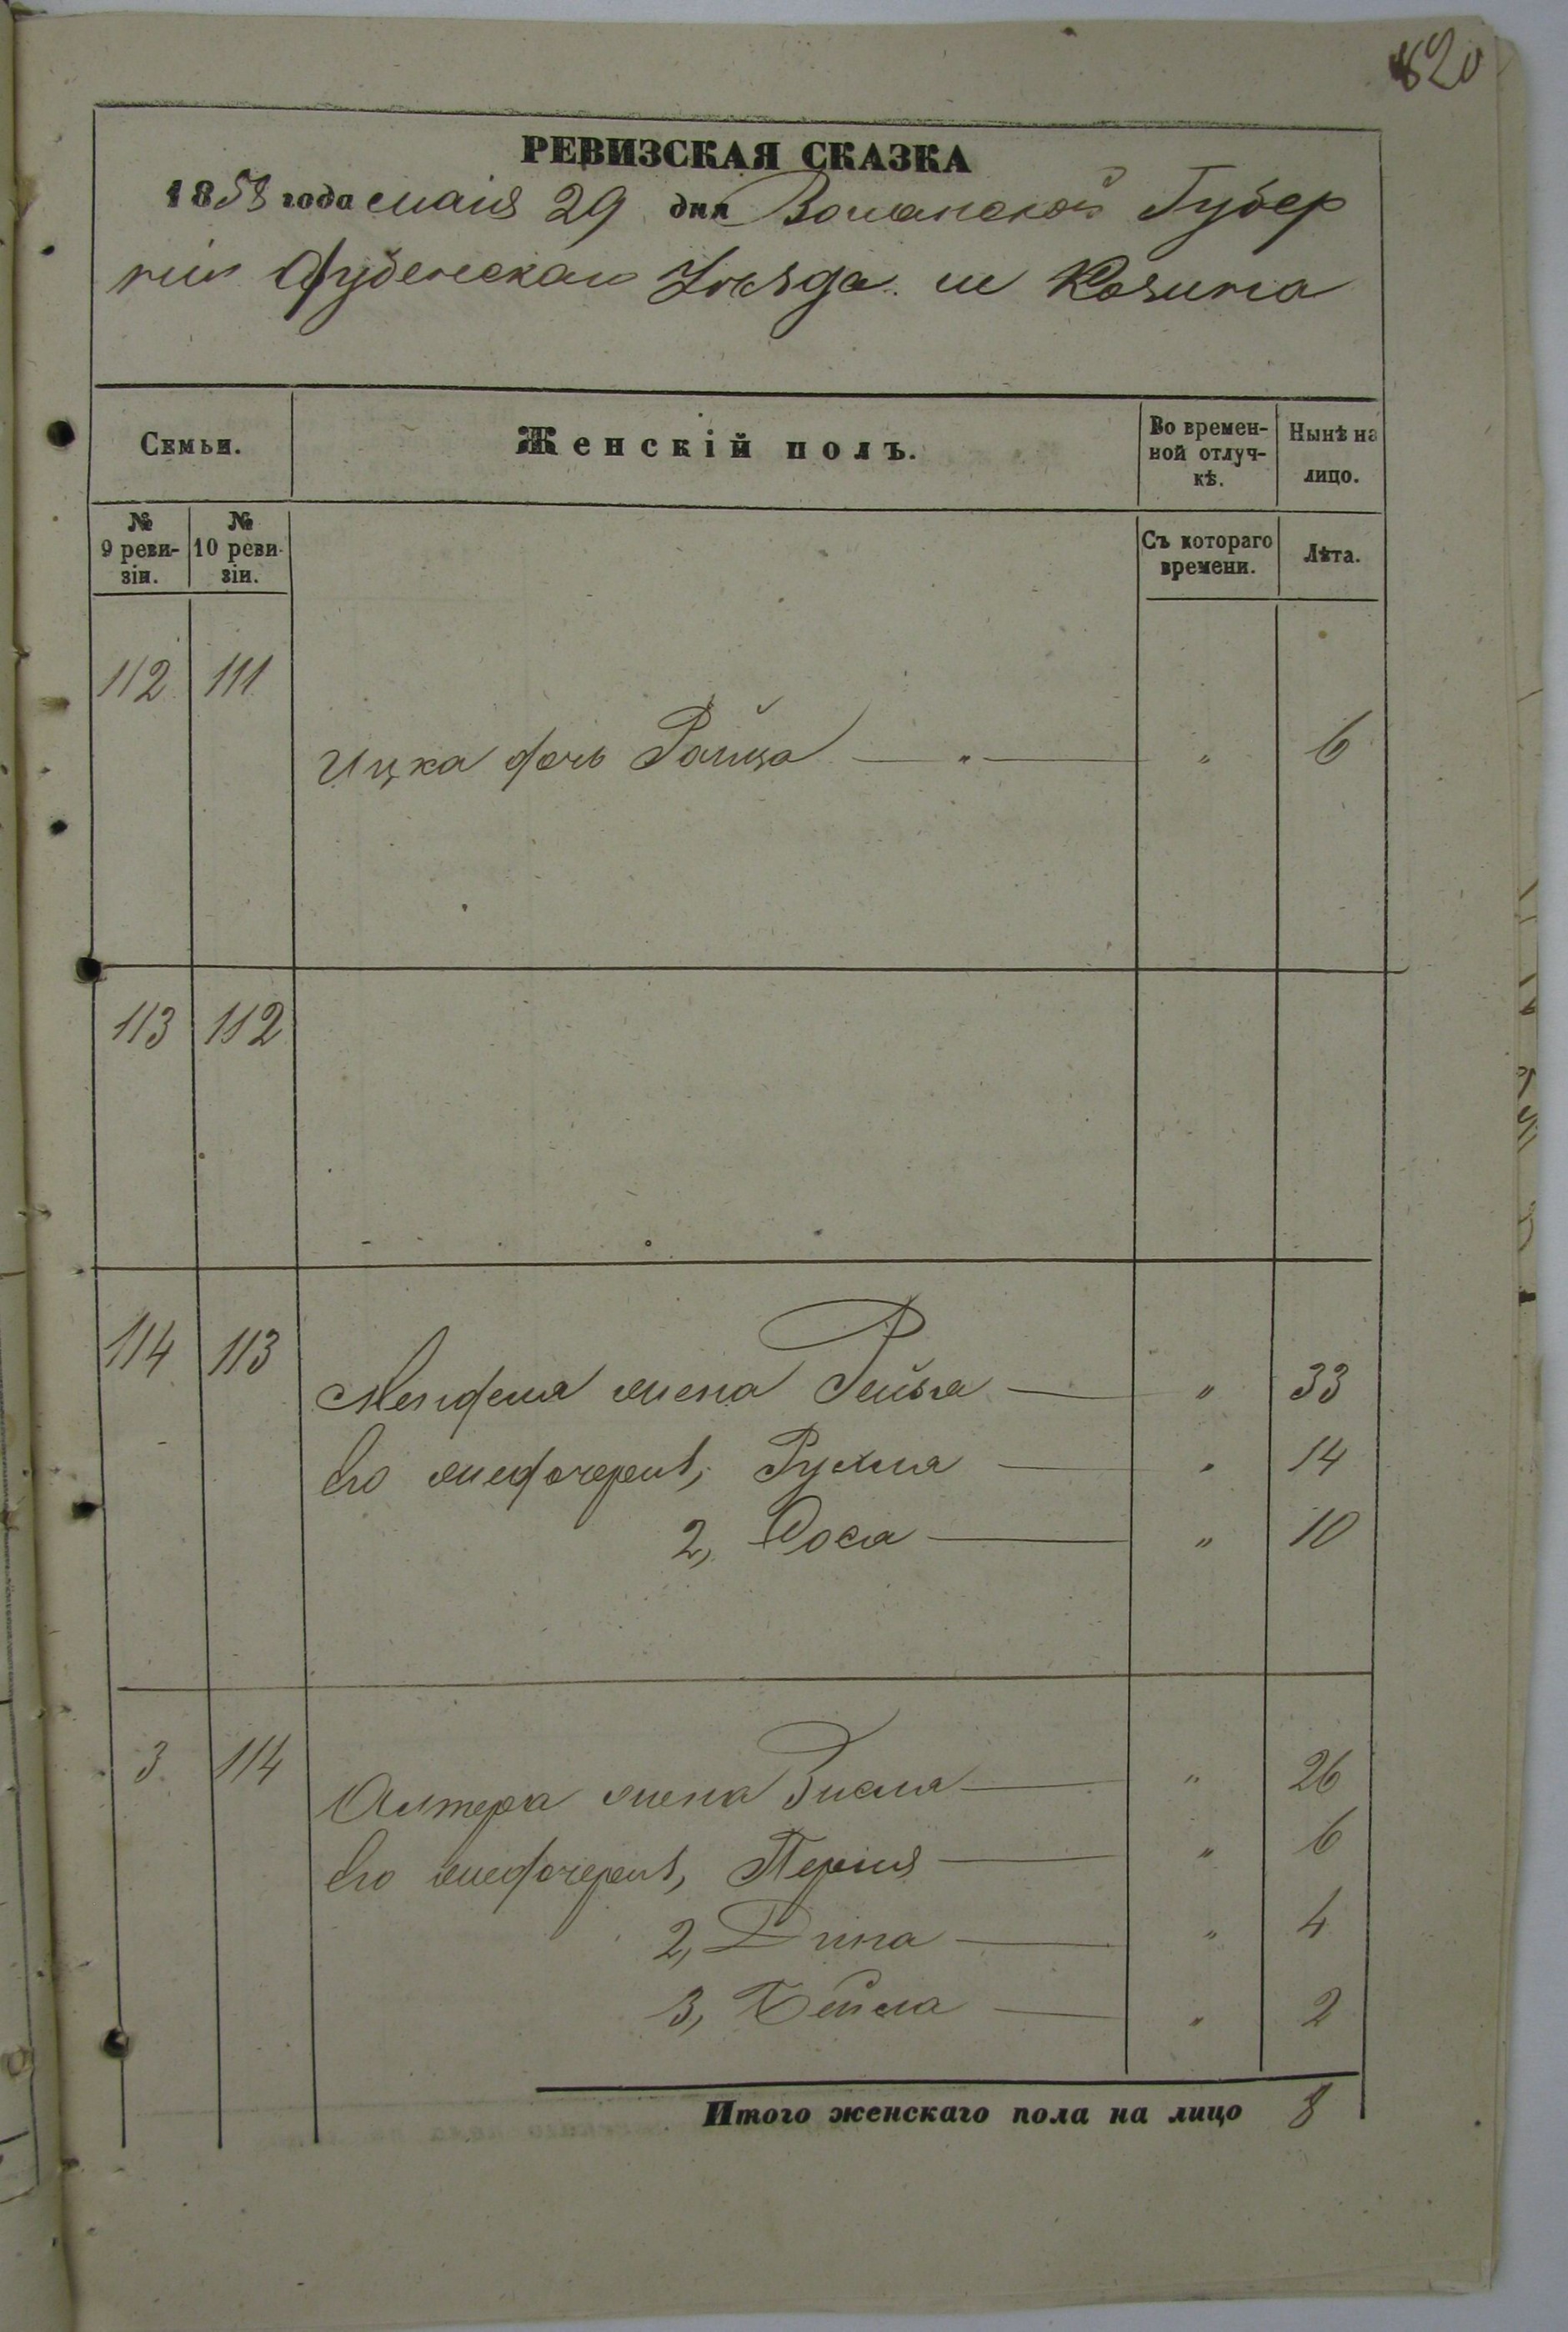 820
РЕВИЗСКАЯ СКАЗКА
1858 года маія 29 дня Волынской Губер
ніи Дубенскаго Уѣзда м Козина
Семьи.
Женскій полъ.
Во времен-
ной отлуч-
кѣ.
Нынѣ на
лицо.
№
9 реви-
зіи.
№
10 реви-
зіи.
Съ котораго
времени.
Лѣта.
112 111
Ицка дочь Райца — " — " 6
113 112
114 113
Менделя жена Рейзя — " 33
Его жедочери 1, Рухля — " 14
2, Фося — " 10
3 114
Алтера жена Гисля — " 26
Его жедочери 1, Перля — " 6
2, Дина — " 4
3, Бейла — " 2
Итого женскаго пола на лицо 8